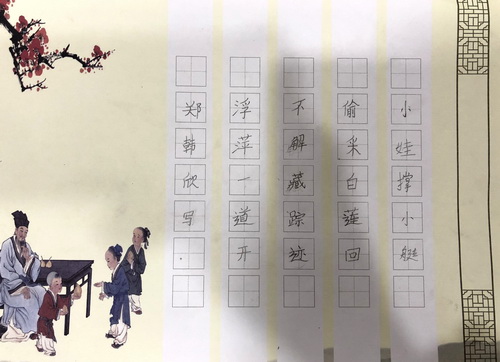 小娃撑小艇
偷采白莲回
不解藏踪迹
浮萍一道开
郑韩欣写.